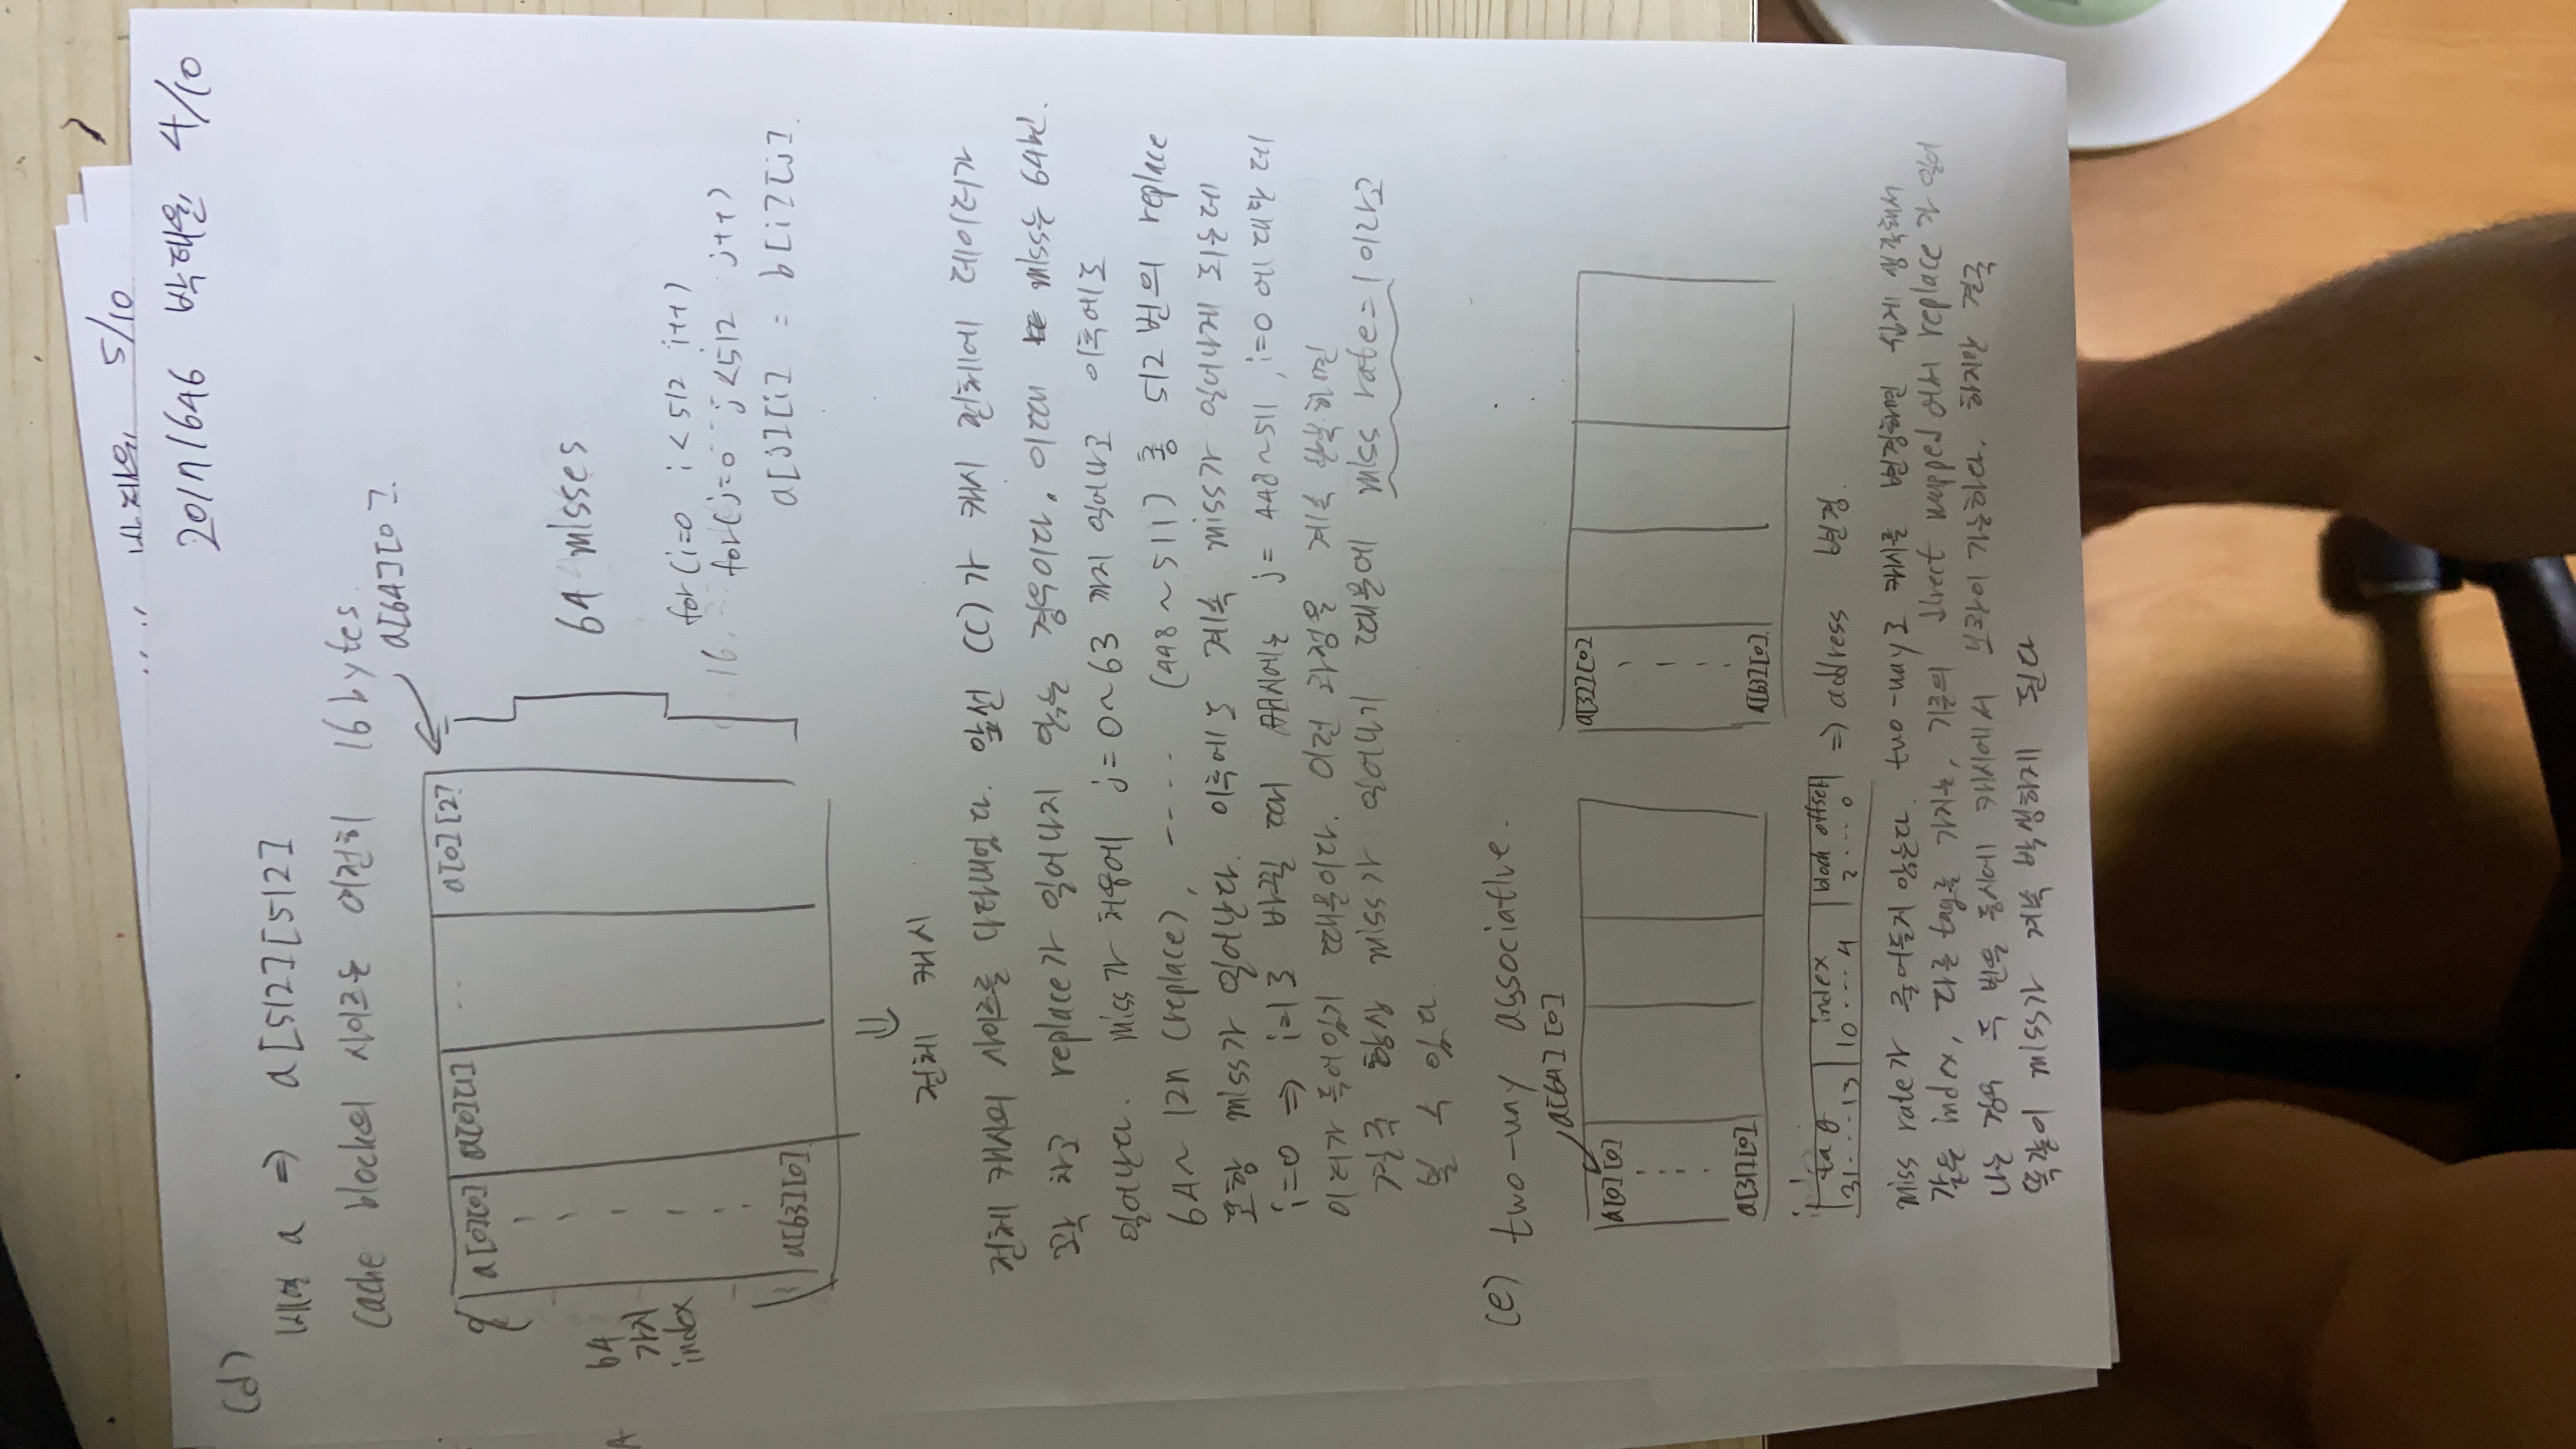 5/10
4/10
(d)
배열 a ⇒ a[512][512]
cache block의 사이즈는 여전히 16 bytes
a[64][0].
a[0][0] a[0][1] .. a[0][2]
64
가지
index
64 misses
for(i=0 i<512 i++)
for(j=0 j<512 j++)
a[j][i] = b[i][j].
a[63][0]
⇓
전체 캐시
전체 캐시의 사이즈를 나타내었다. 앞선 (C)가 캐시 전체에 데이터가
꽉 차고 replace가 일어나지 않는 경우이다. 이때 miss는 64번.
일어난다. miss가 처음에 j=0~63 까지 일어나고 이후에도
64~127 (replace), ---- (448~511) 총 512번의 replace
포함 miss가 일어난다. 이후에도 계속 miss가 일어나게 되는데
i=0 ⇒ i=1로 바뀔 때 캐시에는 j= 448~511, i=0 에 대한 데
이터가 들어있기 때문이다. 이런 과정을 계속 반복하면
결국 항상 miss가 일어나기 때문에 miss rate=1 이라고
볼 수 있다.
(e) two-way associative.
a[64][0]
a[0][0] a[32][0]
a[31][0] a[63][0]
tag index block offset
31...13 10...4 2...0 ⇒ address 변경.
miss rate가 줄어들지 않는다. two-way로 캐시를 변경하면 쉽게 생각해서
같은 index, 다른 tag를 가지는, 기존의 direct mapped에서 replace가 일어
나는 경우 두 번을 동시에 캐시에서 보관이 가능하다. 하지만 결국
똑같이 miss가 계속 발생하게 된다